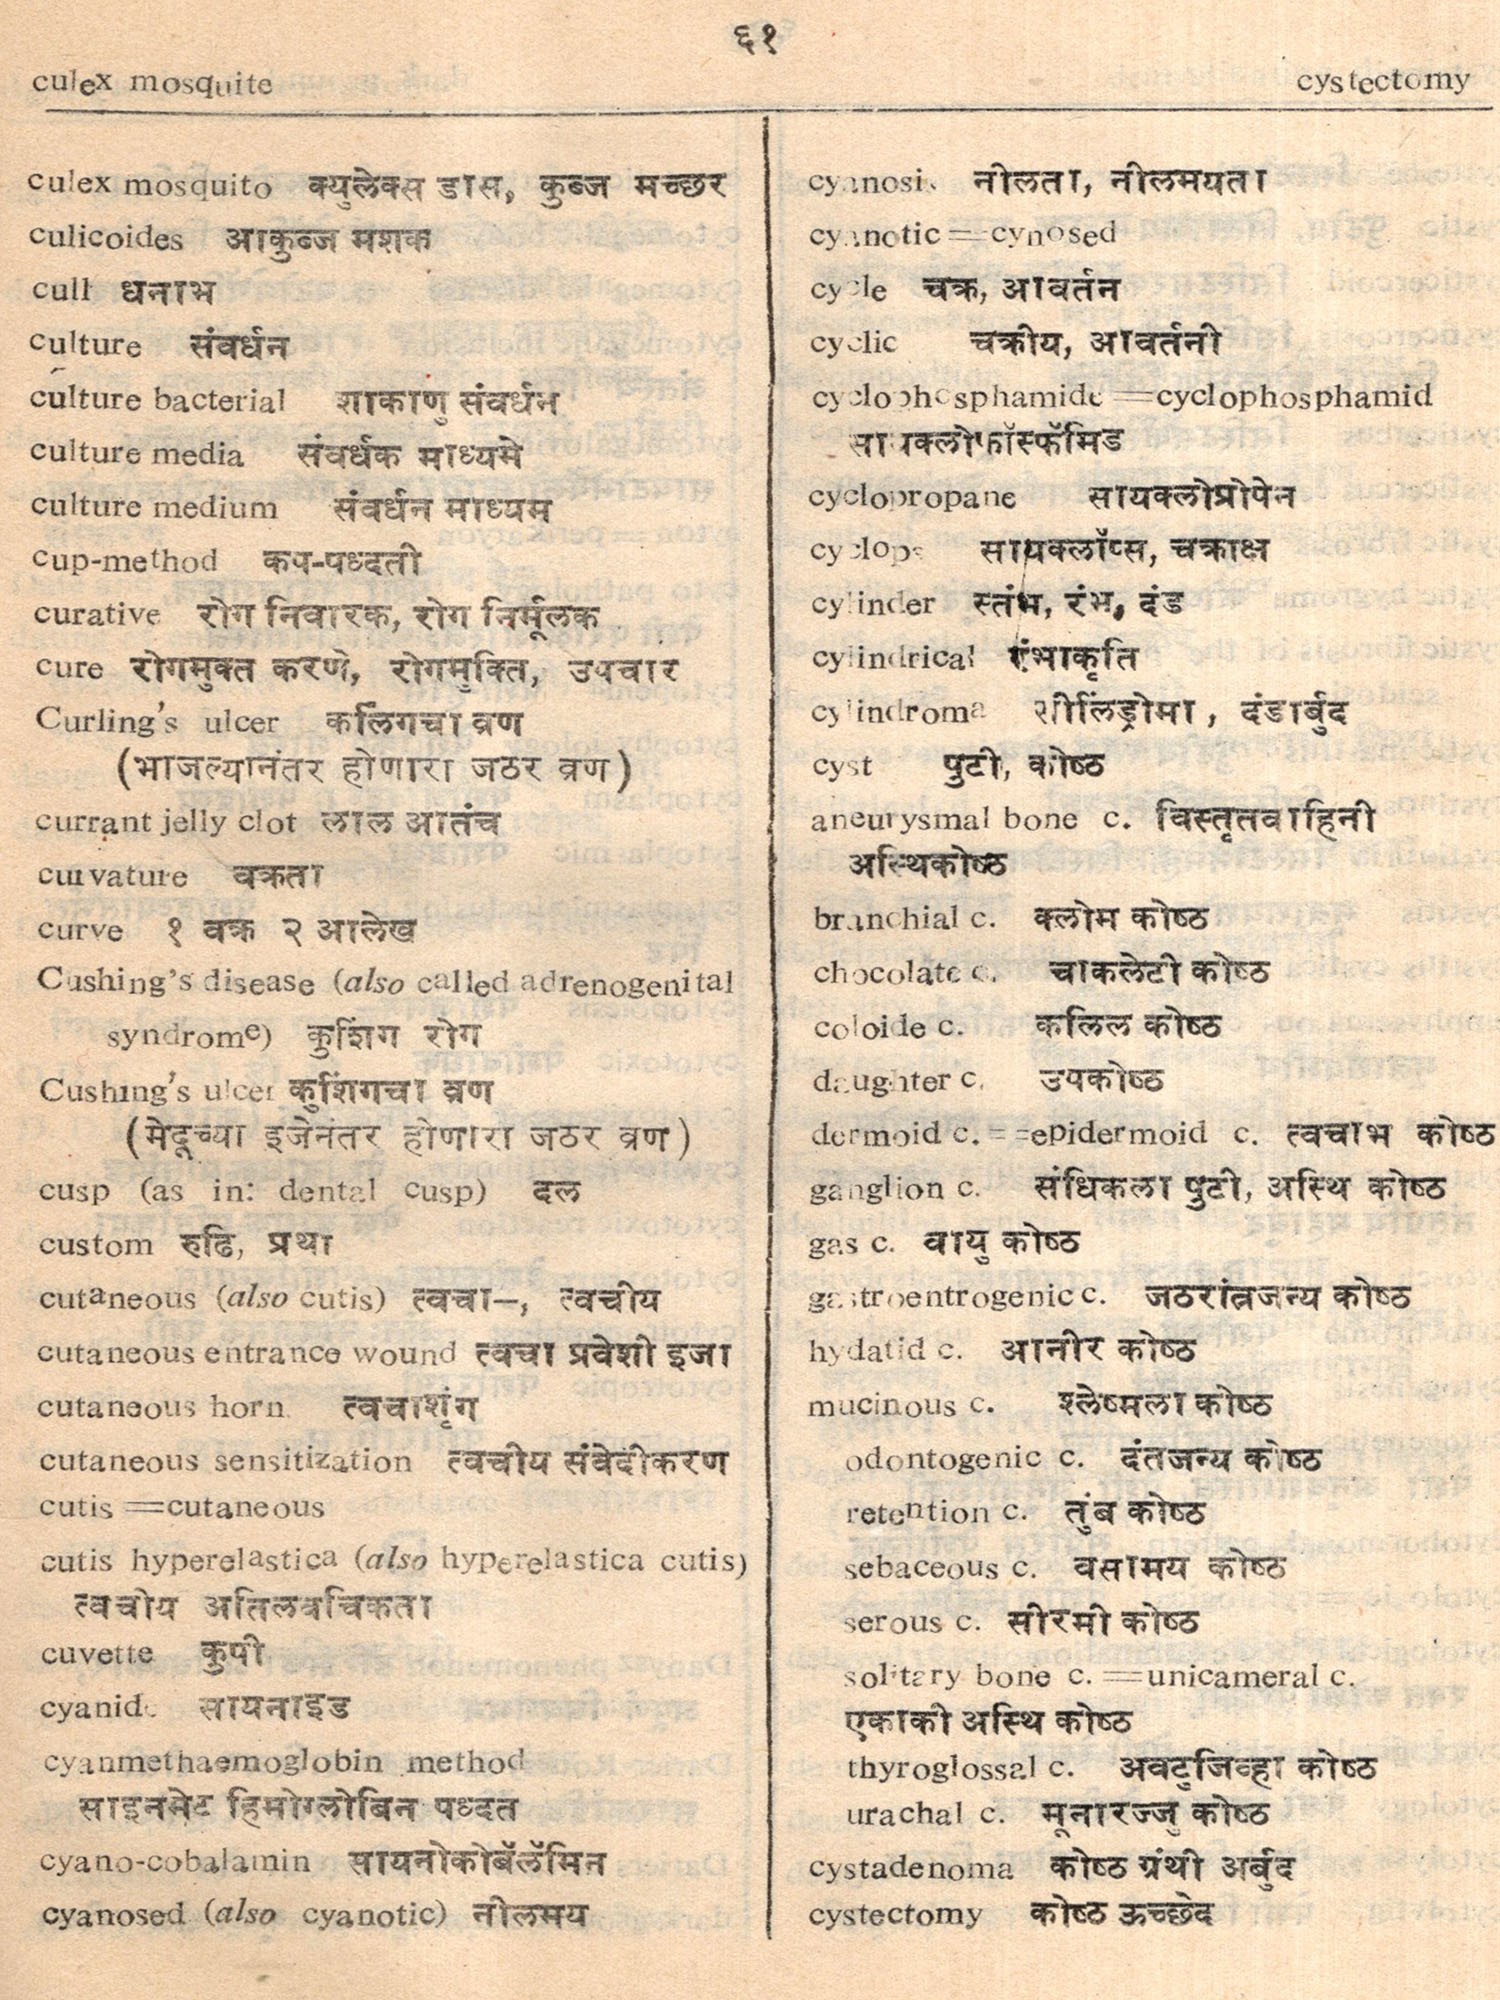 ६१
culex mosquite
cystectomy
culex mosquito क्युलेक्स डास, कुब्ज मच्छर
culicoides आकुब्ज मशक
cull धनाभ
culture संवर्धन
culture bacterial शाकाणु संवर्धन
culture media संवर्धक माध्यमे
culture medium संवर्धन माध्यम
cup-method कप-पध्दती
curative रोग निवारक, रोग निर्मूलक
cure रोगमुक्त करणे, रोगमुक्ति, उपचार
Curling's ulcer कर्लिगचा व्रण
(भाजल्यानंतर होणारा जठर व्रण)
currant jelly clot लाल आतंच
curvature वक्रता
curve १ वक्र २ आलेख
Cushing's disease (also called adrenogenital
syndrome) कुशिंग रोग
Cushing's ulcer कुशिंगचा व्रण
(मेदूच्या इजेनंतर होणारा जठर व्रण)
cusp (as in: dental cusp) दल
custom रुढि, प्रथा
cutaneous (also cutis) त्वचा–, त्वचीय
cutaneous entrance wound त्वचा प्रवेशी इजा
cutaneous horn त्वचाशृंग
cutaneous sensitization त्वचीय संवेदीकरण
cutis ==cutaneous
cutis hyperelastica (also hyperelastica cutis)
त्वचीय अतिलवचिकता
cuvette कुपी
cyanide सायनाइड
cyanmethaemoglobin method
साइनमेट हिमोग्लोबिन पध्दत
cyano-cobalamin सायनोकोबॅलॅमिन
cyanosed (also cyanotic) नीलमय
cyanosis नीलता, नीलमयता
cyanotic ==cynosed
cycle चक्र, आवर्तन
cyclic चक्रीय, आवर्तनी
cyclophosphamide ==cyclophosphamid
सायक्लोफॉस्फॅमिड
cyclopropane सायक्लोप्रोपेन
cyclops सायक्लॉप्स, चक्राक्ष
cylinder स्तंभ, रंभ, दंड
cylindrical रंभाकृति
cylindroma सीलिंड्रोमा, दंडार्बुद
cyst पुटी, कोष्ठ
aneurysmal bone c. विस्तृतवाहिनी
अस्थिकोष्ठ
branchial c. क्लोम कोष्ठ
chocolate c. चाकलेटी कोष्ठ
coloide c. कलिल कोष्ठ
daughter c. उपकोष्ठ
dermoid c. ==epidermoid c. त्वचाभ कोष्ठ
ganglion c. संधिकला पुटी, अस्थि कोष्ठ
gas c. वायु कोष्ठ
gastroentrogenic c. जठरांत्रजन्य कोष्ठ
hydatid c. आनीर कोष्ठ
mucinous c. श्लेष्मला कोष्ठ
odontogenic c. दंतजन्य कोष्ठ
retention c. तुंब कोष्ठ
sebaceous c. वसामय कोष्ठ
serous c. सीरमी कोष्ठ
solitary bone c. ==unicameral c.
एकाकी अस्थि कोष्ठ
thyroglossal c. अवटुजिव्हा कोष्ठ
urachal c. मूनारज्जु कोष्ठ
cystadenoma कोष्ठ ग्रंथी अर्बुद
cystectomy कोष्ठ ऊच्छेद